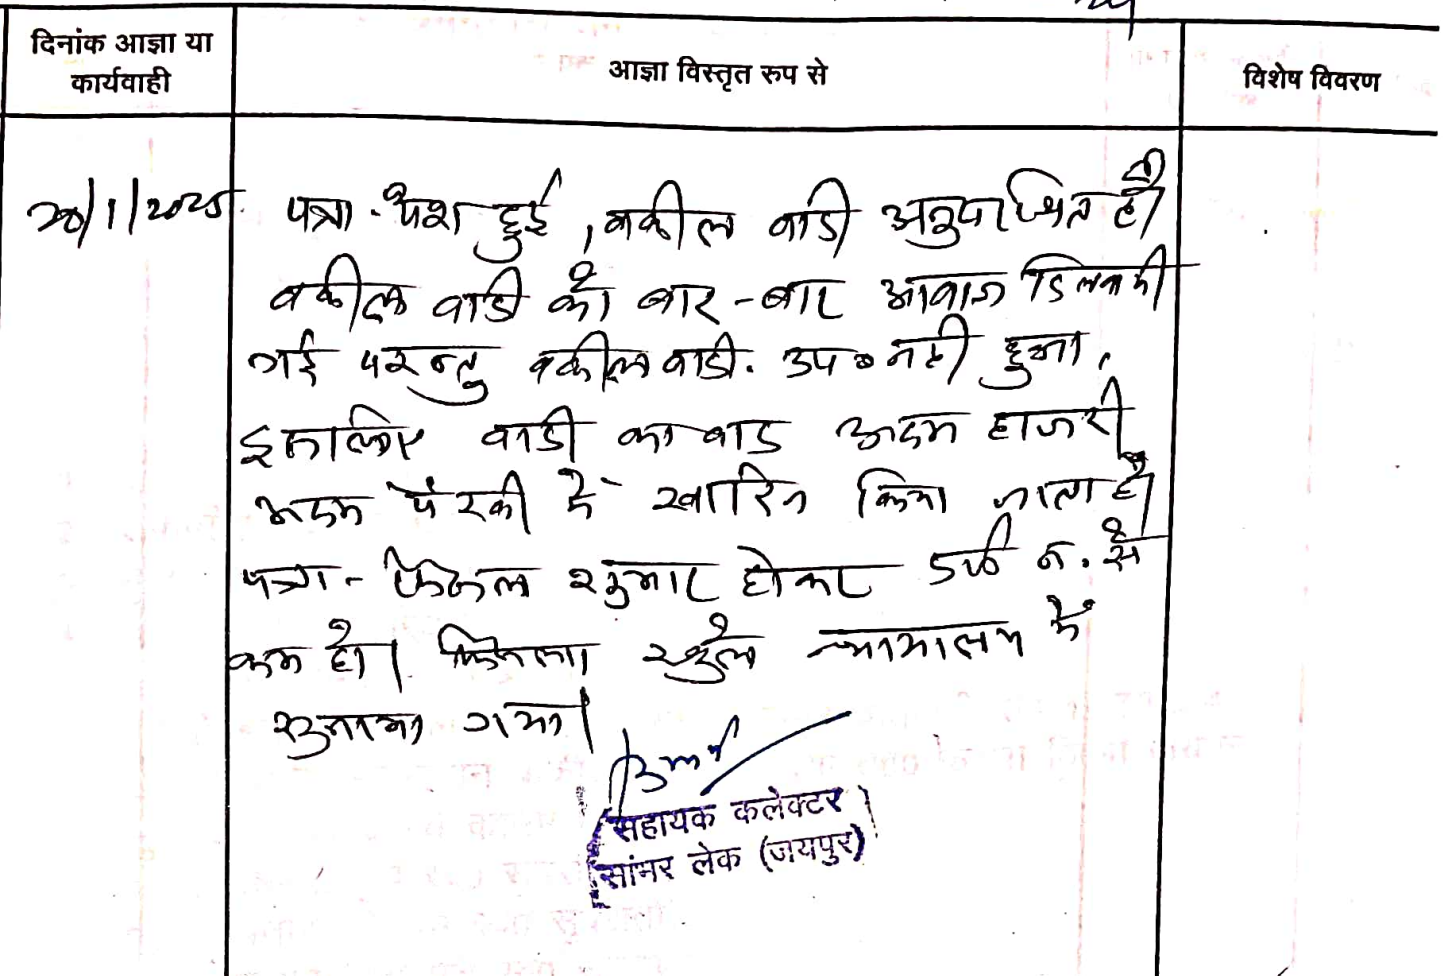 दिनांक आज्ञा या
कार्यवाही
आज्ञा विस्तृत रुप से
विशेष विवरण
पत्रा. पेश हुई, वकील वादी अनुपस्थित है।
वकील वादी को बार-बार आवाज दिलवायी
गई परन्तु वकील वादी. उप० नही हुआ,
इसलिए वादी का वाद अदम हाजरी
अदम पैरवी में खारिज किया जाता है।
पत्रा- फैसल शुमार होकर दर्ज न. से
कम हो। फैसला खुले न्यायालय में
सुनाया गया।
सहायक कलेक्टर
सांभर लेक (जयपुर)